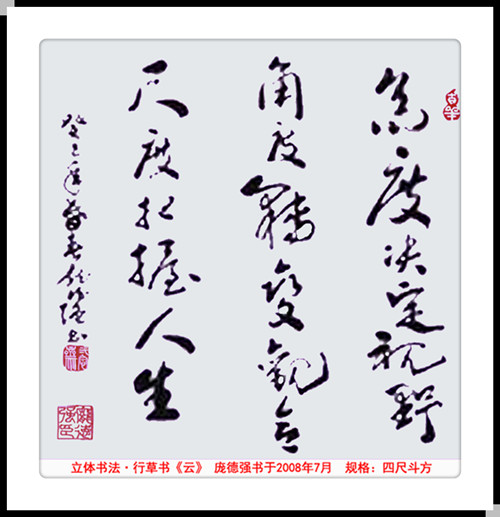 高度决定视野
角度轉變觀念
尺度把握人生
癸巳年暮春
龐德强印
立体书法·行草书《云》 庞德强书于2008年7月 规格：四尺斗方